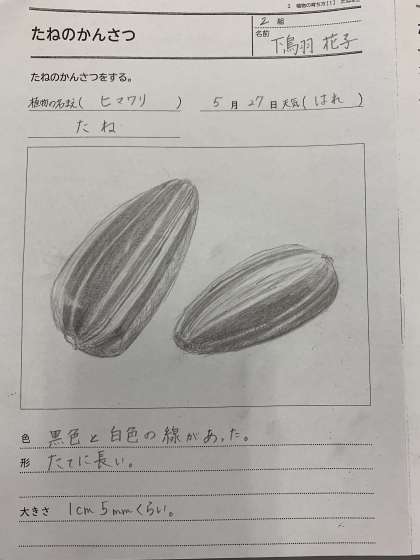 1 植物の育ち方[1]
2 組
たねのかんさつ
名前 下鳥羽 花子
たねのかんさつをする。
植物の名まえ( ヒマワリ ) 5 月 27 日 天気( はれ )
たね
色 黒色と白色の線があった。
形 たてに長い。
大きさ 1cm 5mmくらい。